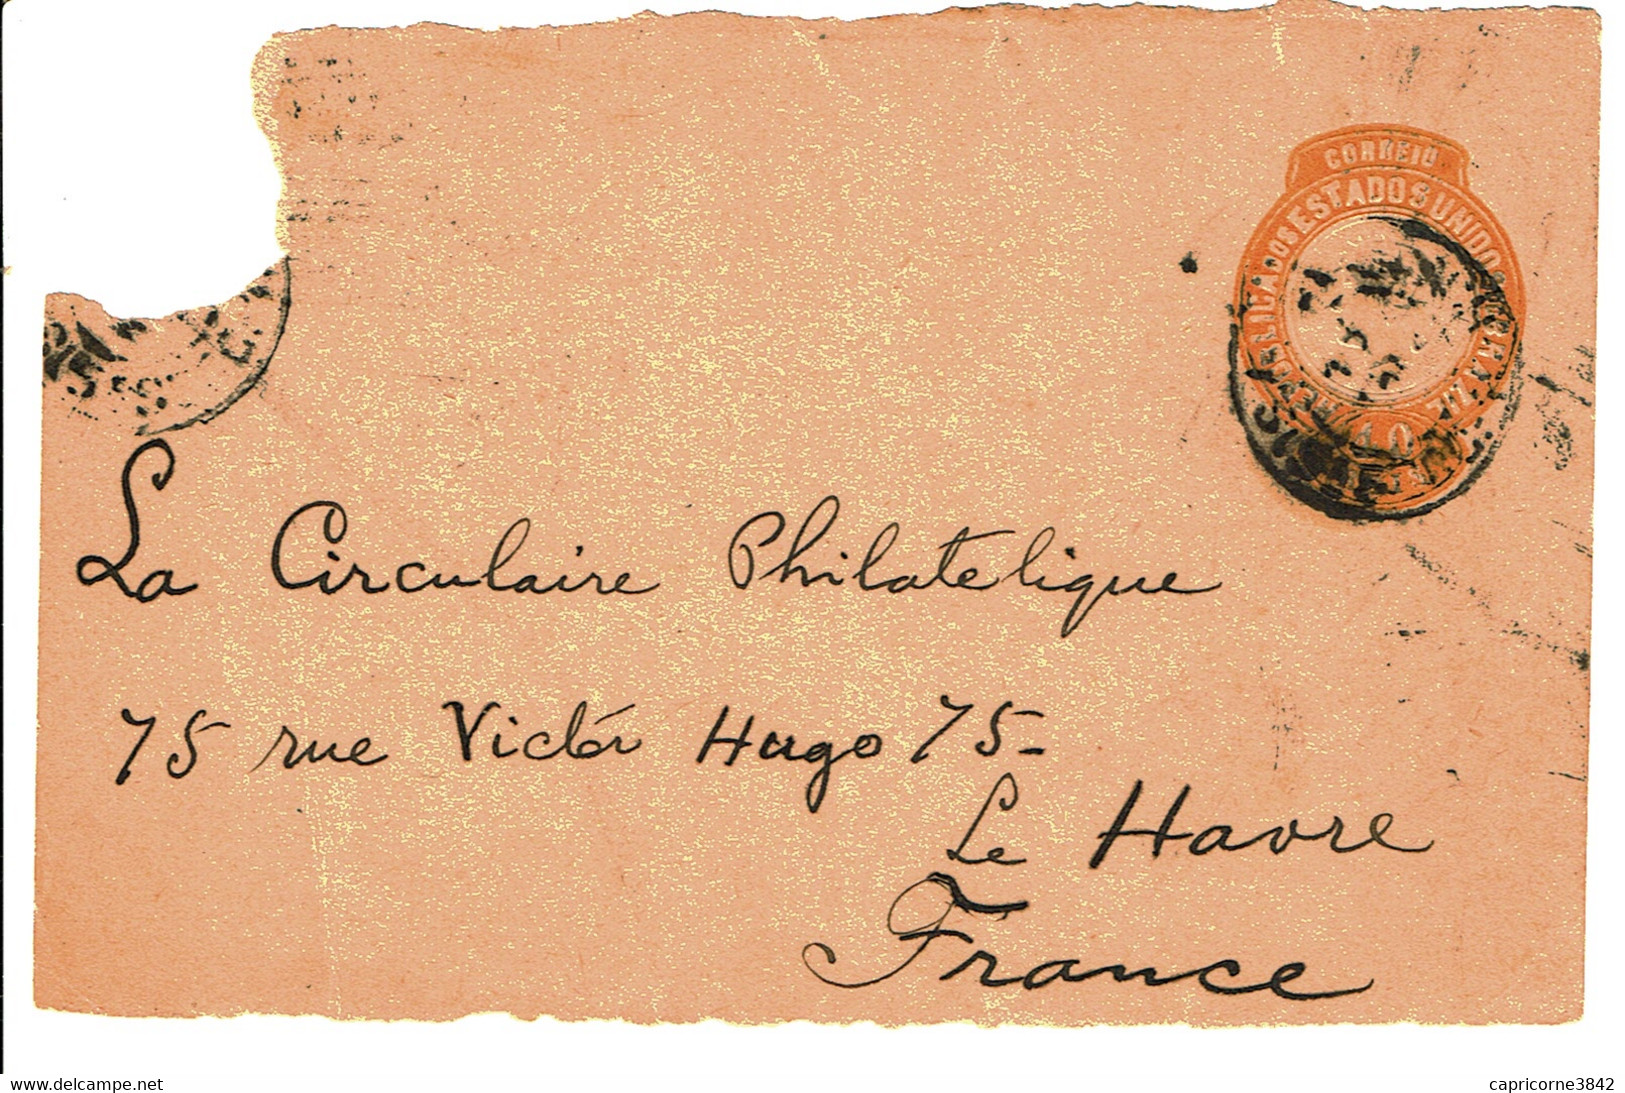 CORREIO
ESTADOS UNIDOS
10
La Circulaire Philatelique
75 rue Victór Hugo 75-
Le Havre
France
delcampe.net
capricorne3842